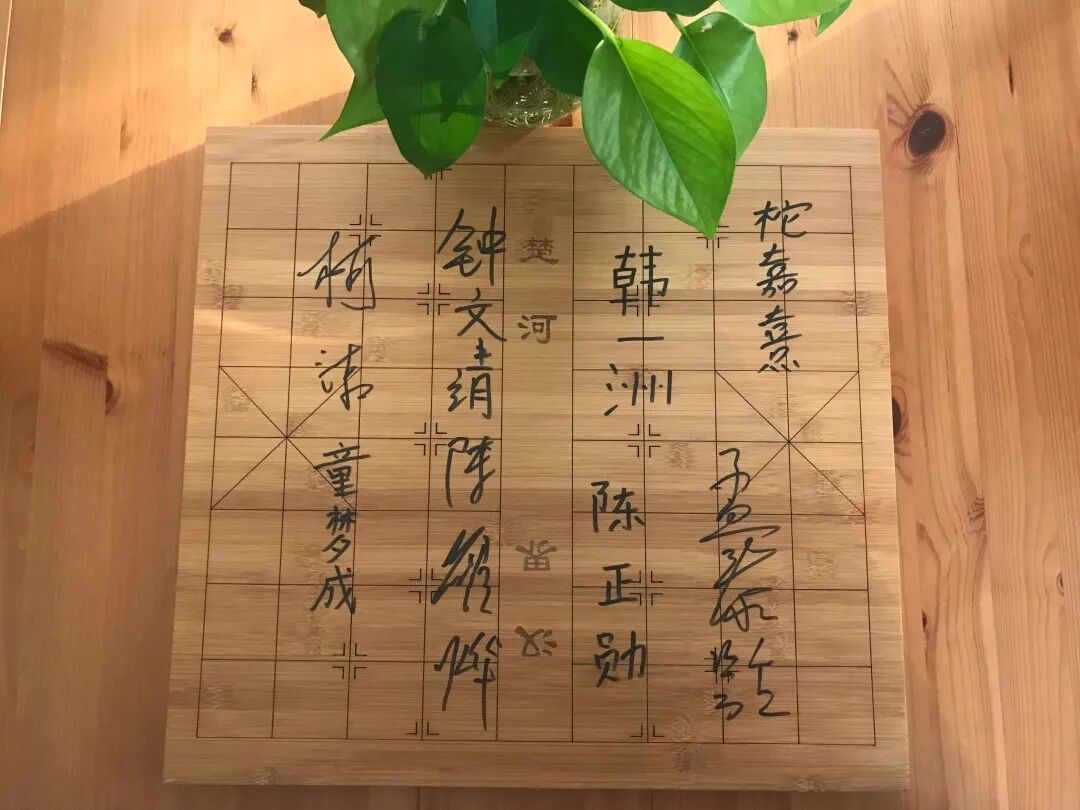 柁嘉熹
孟泰龄
韩一洲
陈正勋
楚河
汉界
钟文靖
陈耀烨
童梦成